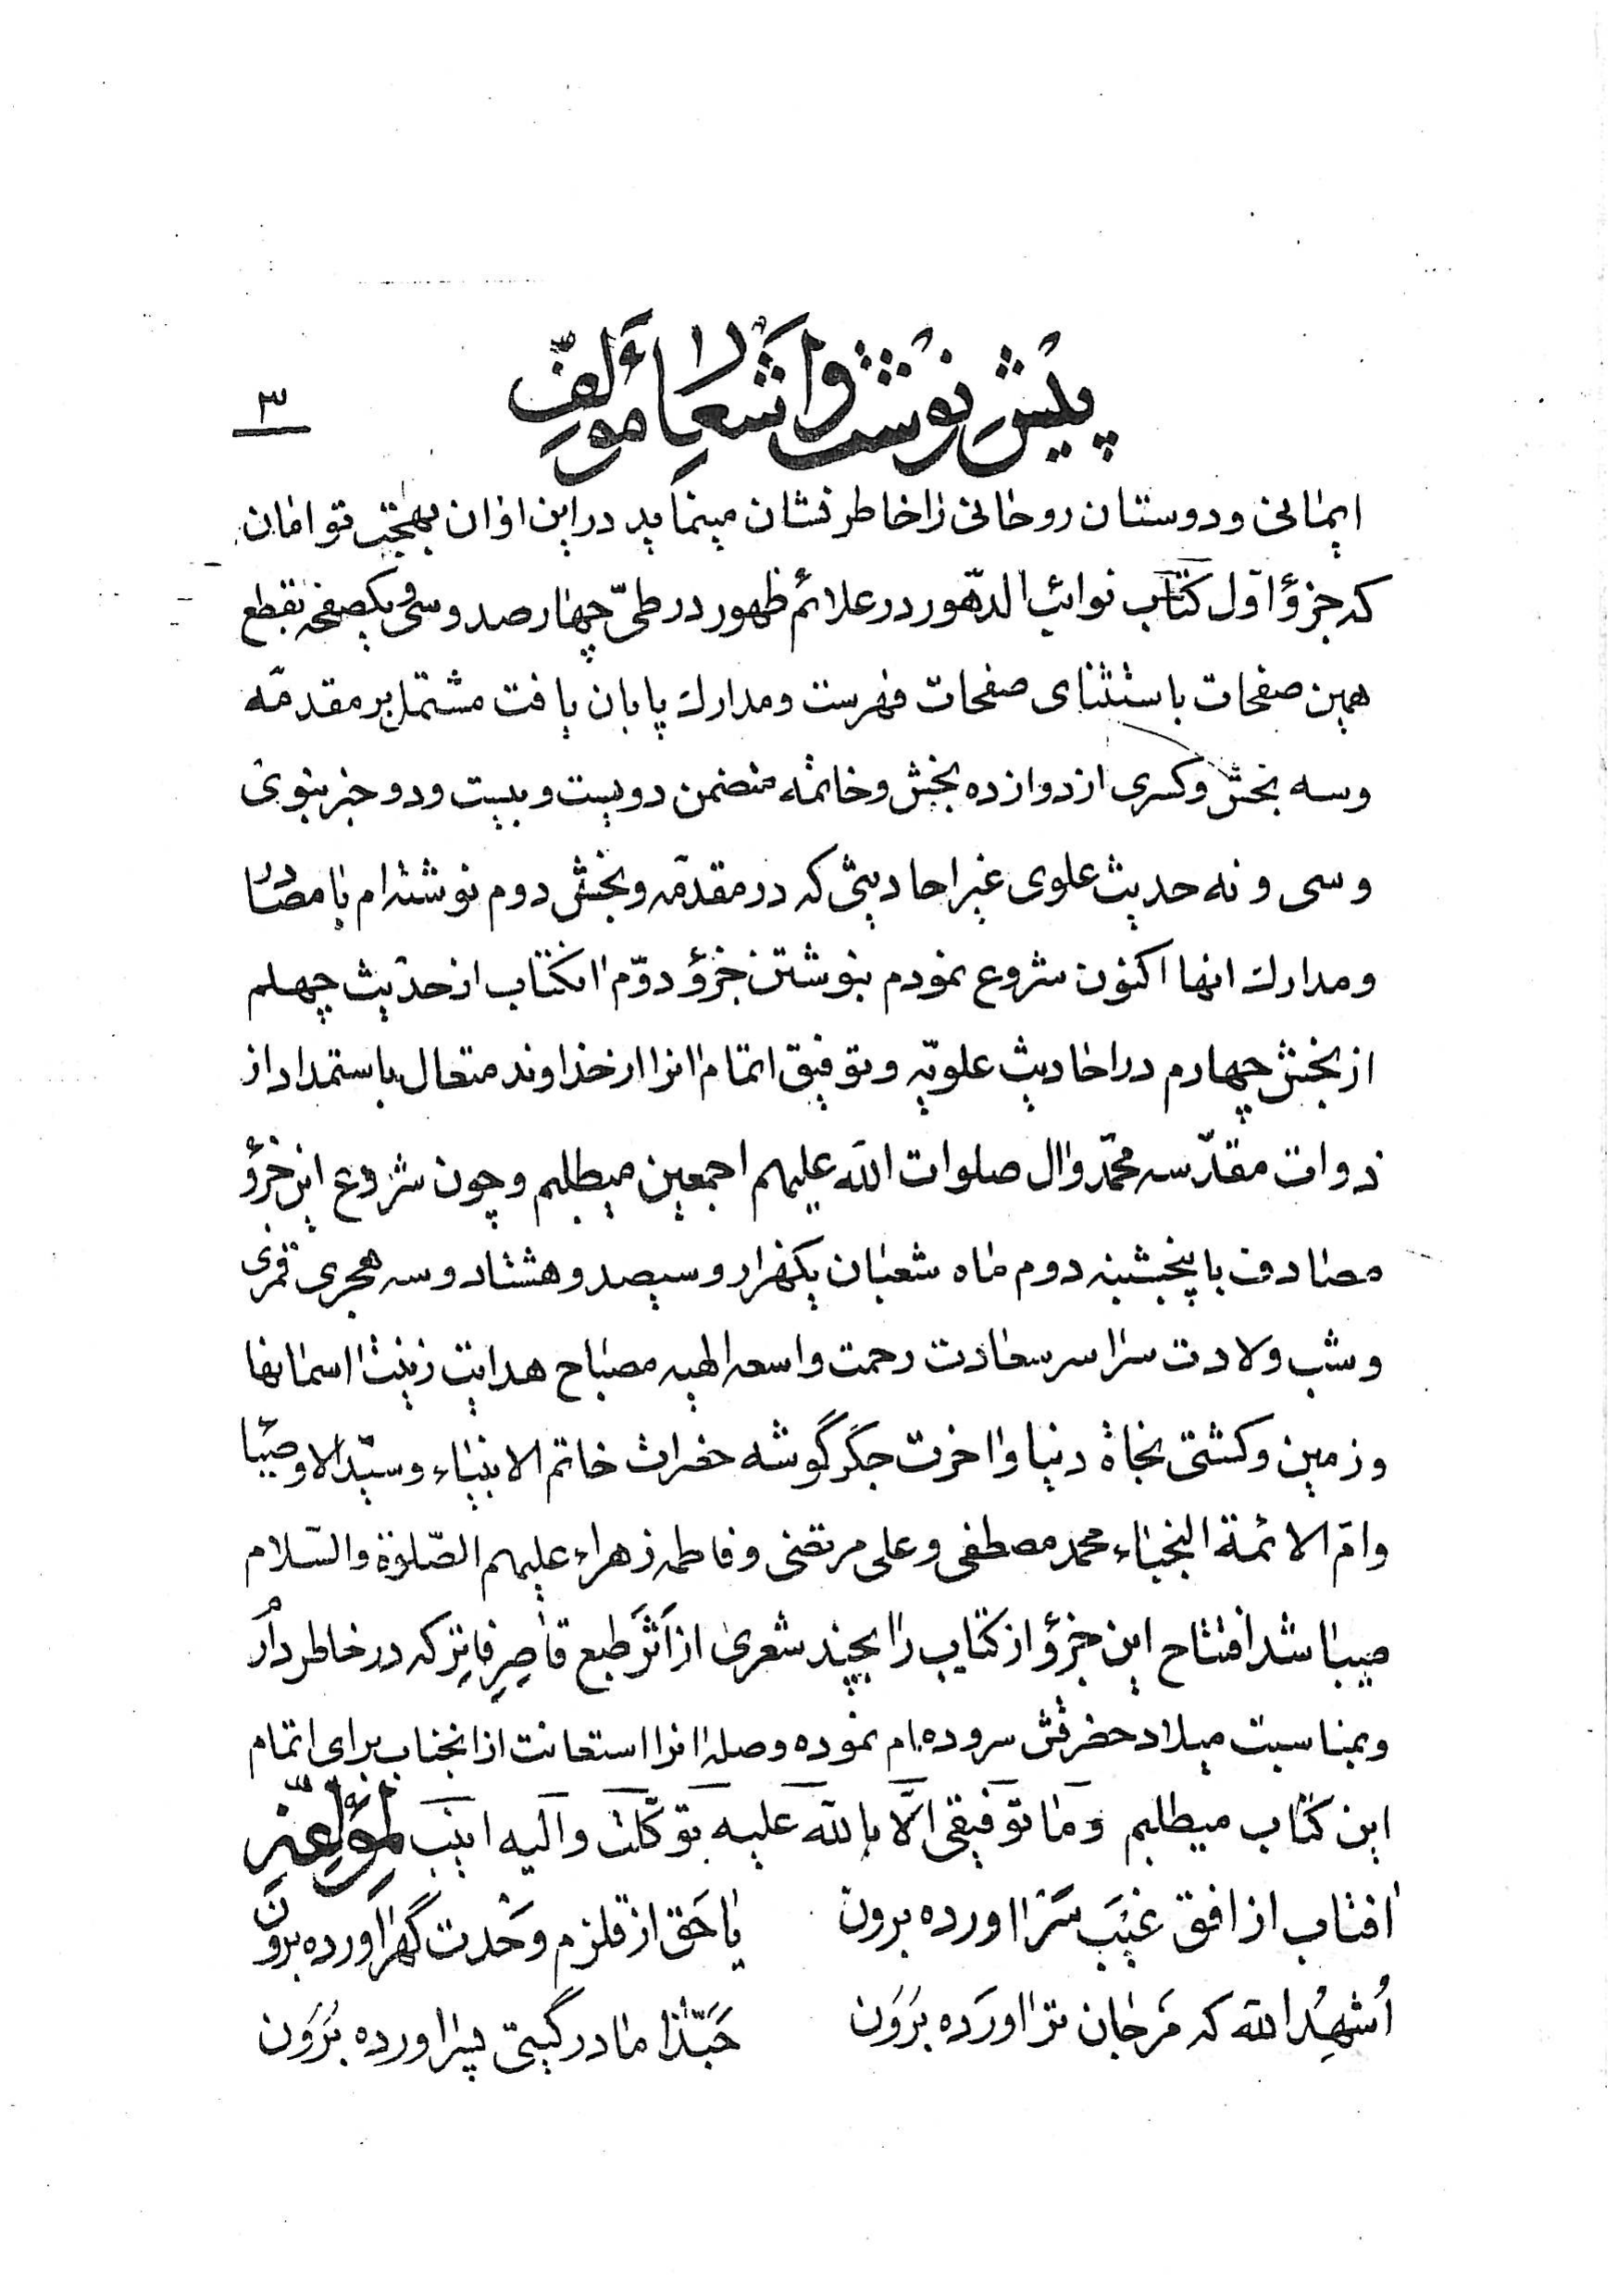 پیش نوشت و اشعار مؤلف
۳
ایمانی و دوستان روحانی را خاطر نشان مینماید در این اوان بهجت توامان
که جزؤ اول کتاب نوائب الدّهور در علائم ظهور در طیّ چهار صد و سی و یکصفحه بقطع
همین صفحات باستثنای صفحات فهرست و مدارك پایان یافت مشتمل بر مقدمّه
و سه بخش و کسری از دوازده بخش و خاتمه متضمن دویست و بیست و دو خبر نبوی
و سی و نه حدیث علوی غیر احادیثی که در مقدّمه و بخش دوم نوشته‌ام با مصادر
و مدارك انها اکنون شروع نمودم بنوشتن جزؤ دوّم انکتاب از حدیث چهلم
از بخش چهارم در احادیث علویّه و توفیق اتمام انرا از خداوند متعال باستمداد از
ذوات مقدّسه محمّد وال صلوات اللّه علیهم اجمعین میطلبم و چون شروع این جزؤ
مصادف با پنجشنبه دوم ماه شعبان یکهزار و سیصد و هشتاد و سه هجری قمری
و شب ولادت سراسر سعادت رحمت واسعه الهیه مصباح هدایت زینت اسمانها
و زمین و کشتی نجاة دنیا و اخرت جگر گوشه حضرات خاتم الانبیاء و سیّد الاوصیا
و امّ الائمة النجباء محمد مصطفی و علی مرتضی و فاطمه زهراء علیهم الصّلوة والسّلام
میباشد افتتاح این جزؤ از کتاب را بچند شعری از اَثَر طبع قاصِرِ فاتِر که در خاطر دارم
و بمناسبت میلاد حضرتش سروده‌ام نموده وصله انرا استعانت از انجناب برای اتمام
این کتاب میطلبم و ما توفیقی الّا باللّه علیه توکّلت و الیه انیب لمؤلّفه
افتاب از افق غیب سر اورده برون یا حَق از قلزم وَحْدت گهر اورده برون
اُشهِدُ اللّه که مَرجان تر اورَده بَرون حَبَّذا مادر گیتی پسر اورده بُرون